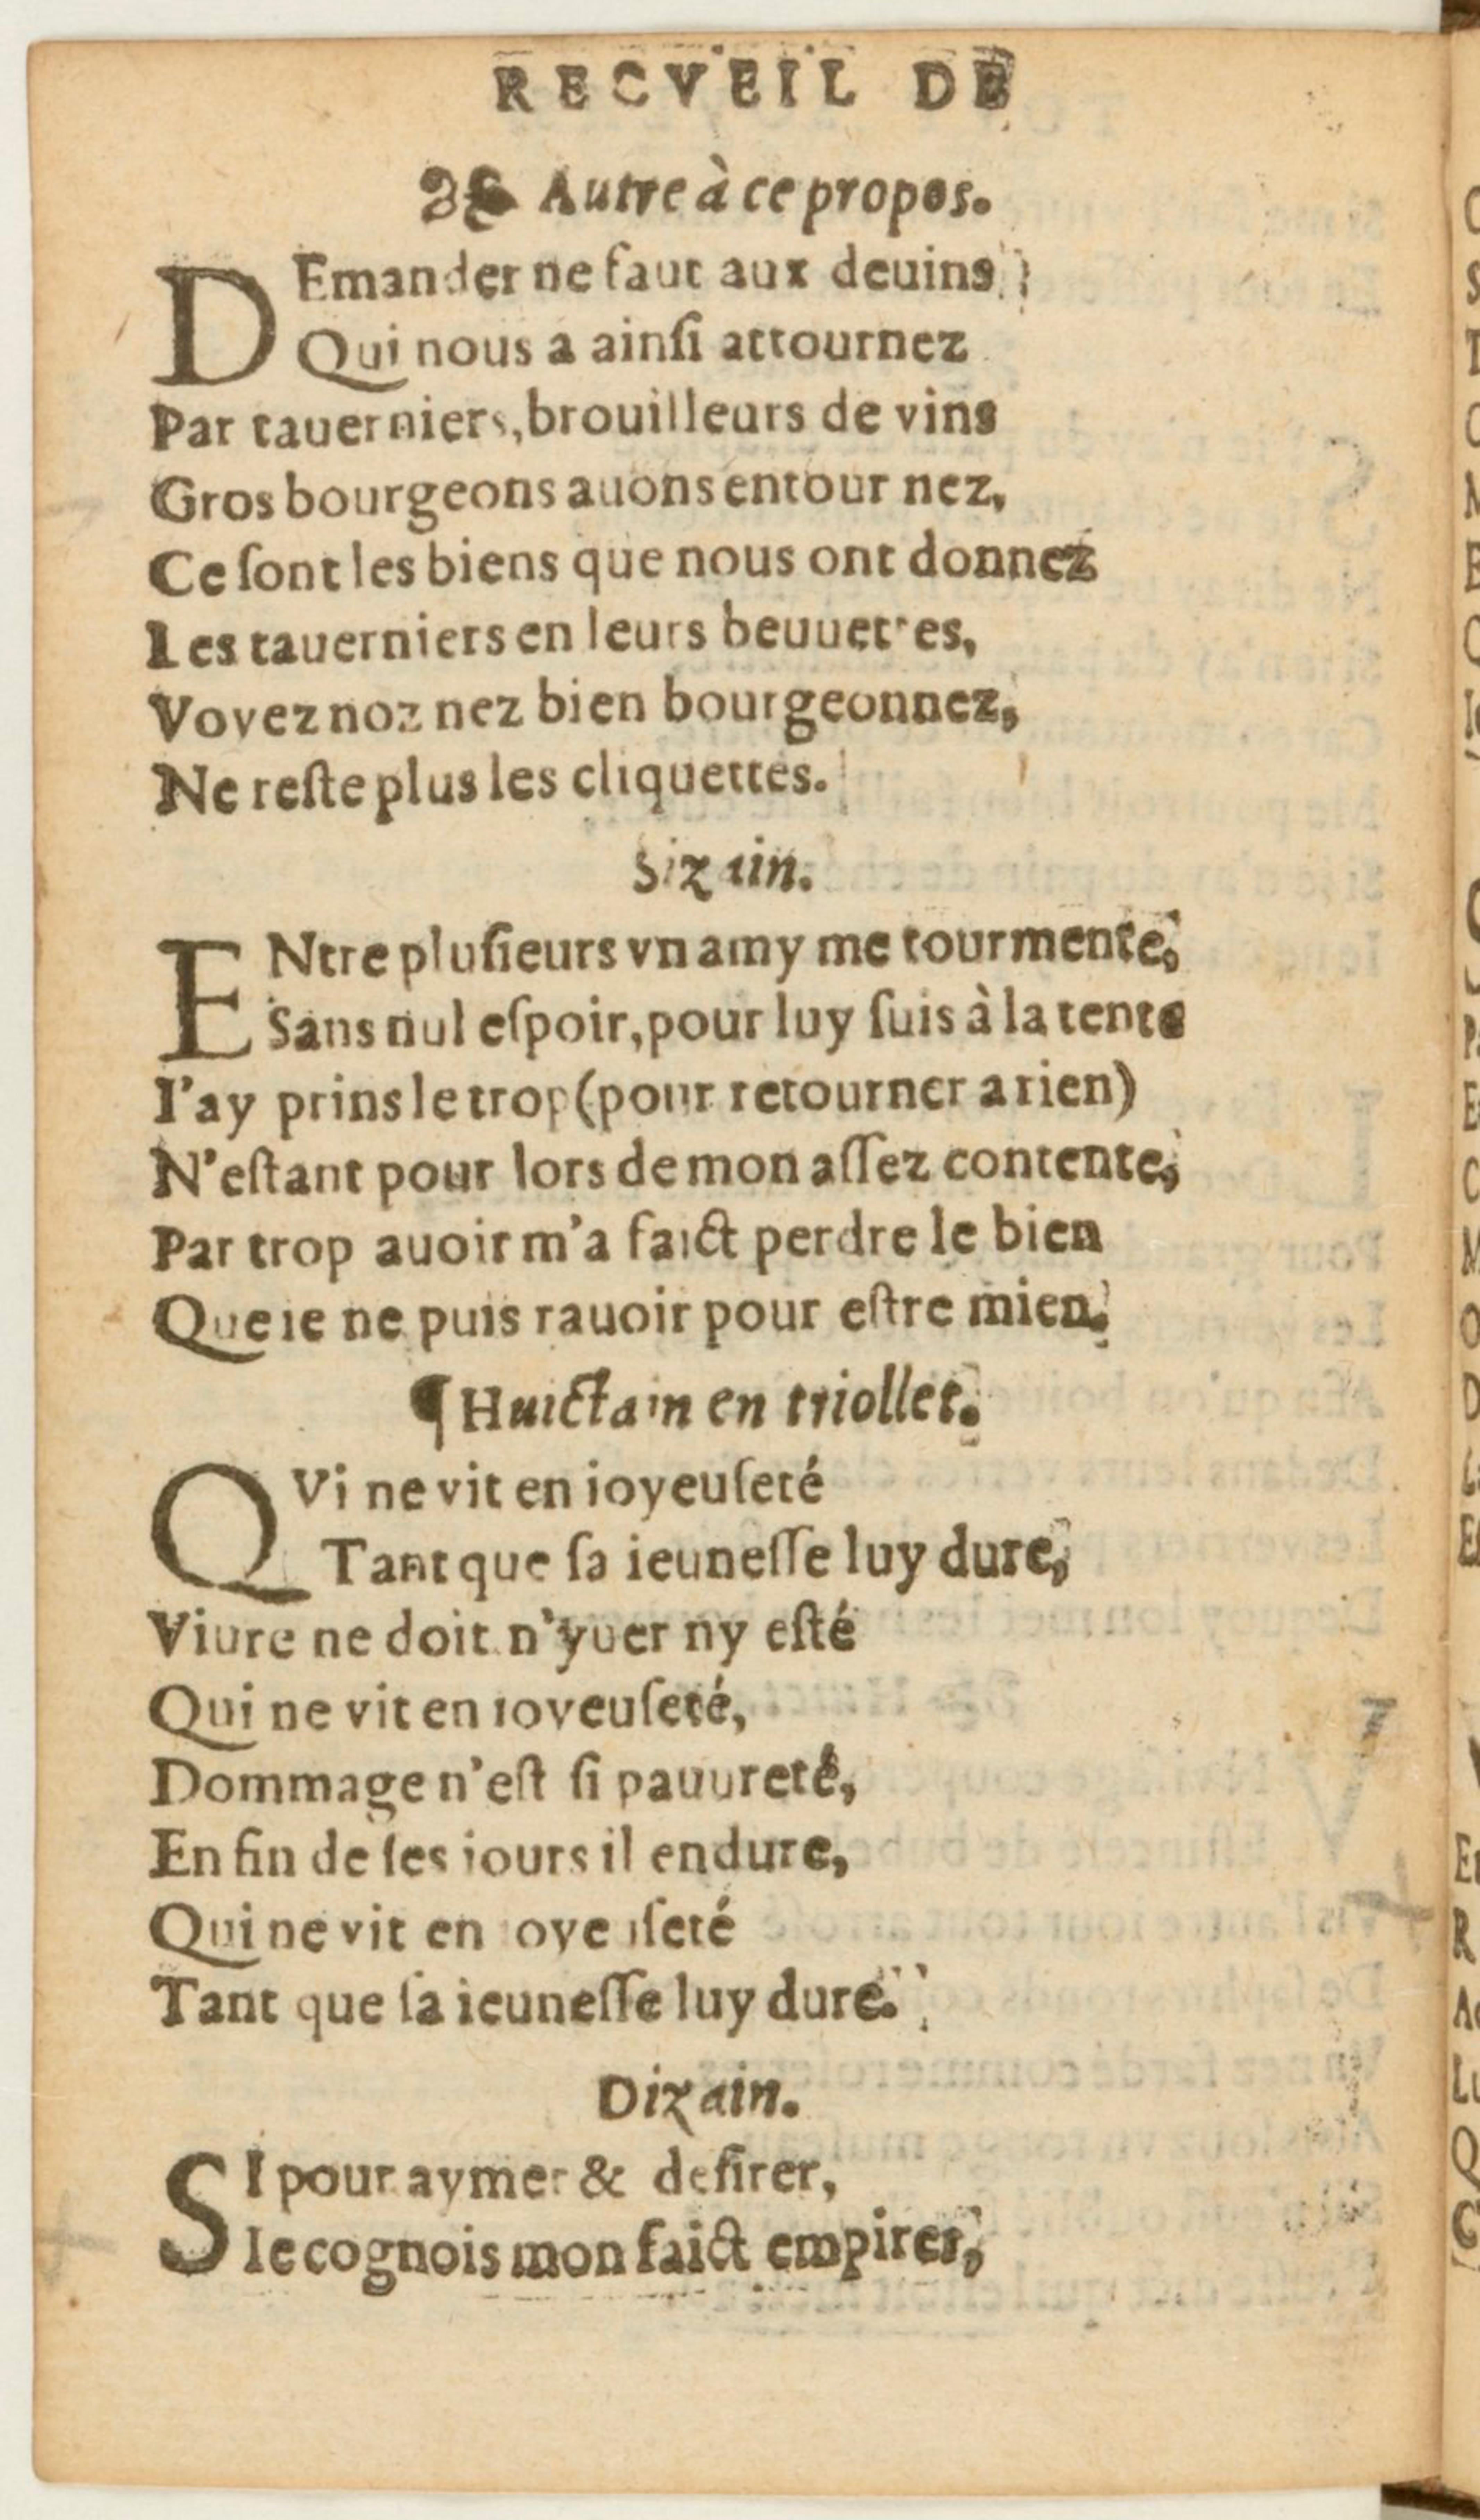 RECVEIL DE
Autre à ce propos.
DEmander ne faut aux deuins
Qui nous a ainſi attournez
Par tauerniers, brouilleurs de vins
Gros bourgeons auons entour nez,
Ce ſont les biens que nous ont donnez
Les tauerniers en leurs beuuettes,
Voyez noz nez bien bourgeonnez,
Ne reſte plus les cliquettes.
Sizain.
ENtre pluſieurs vn amy me tourmente,
Sans nul eſpoir, pour luy ſuis à la tente
I'ay prins le trop (pour retourner a rien)
N'eſtant pour lors de mon aſſez contente,
Par trop auoir m'a faict perdre le bien
Que ie ne puis rauoir pour eſtre mien.
¶ Huictain en triollet.
QVi ne vit en ioyeuſeté
Tant que ſa ieuneſſe luy dure,
Viure ne doit n'yuer ny eſté
Qui ne vit en ioyeuſeté,
Dommage n'eſt ſi pauureté,
En fin de ſes iours il endure,
Qui ne vit en ioyeuſeté
Tant que ſa ieuneſſe luy dure.
Dizain.
SI pour aymer & deſirer,
Ie cognois mon faict empirer,